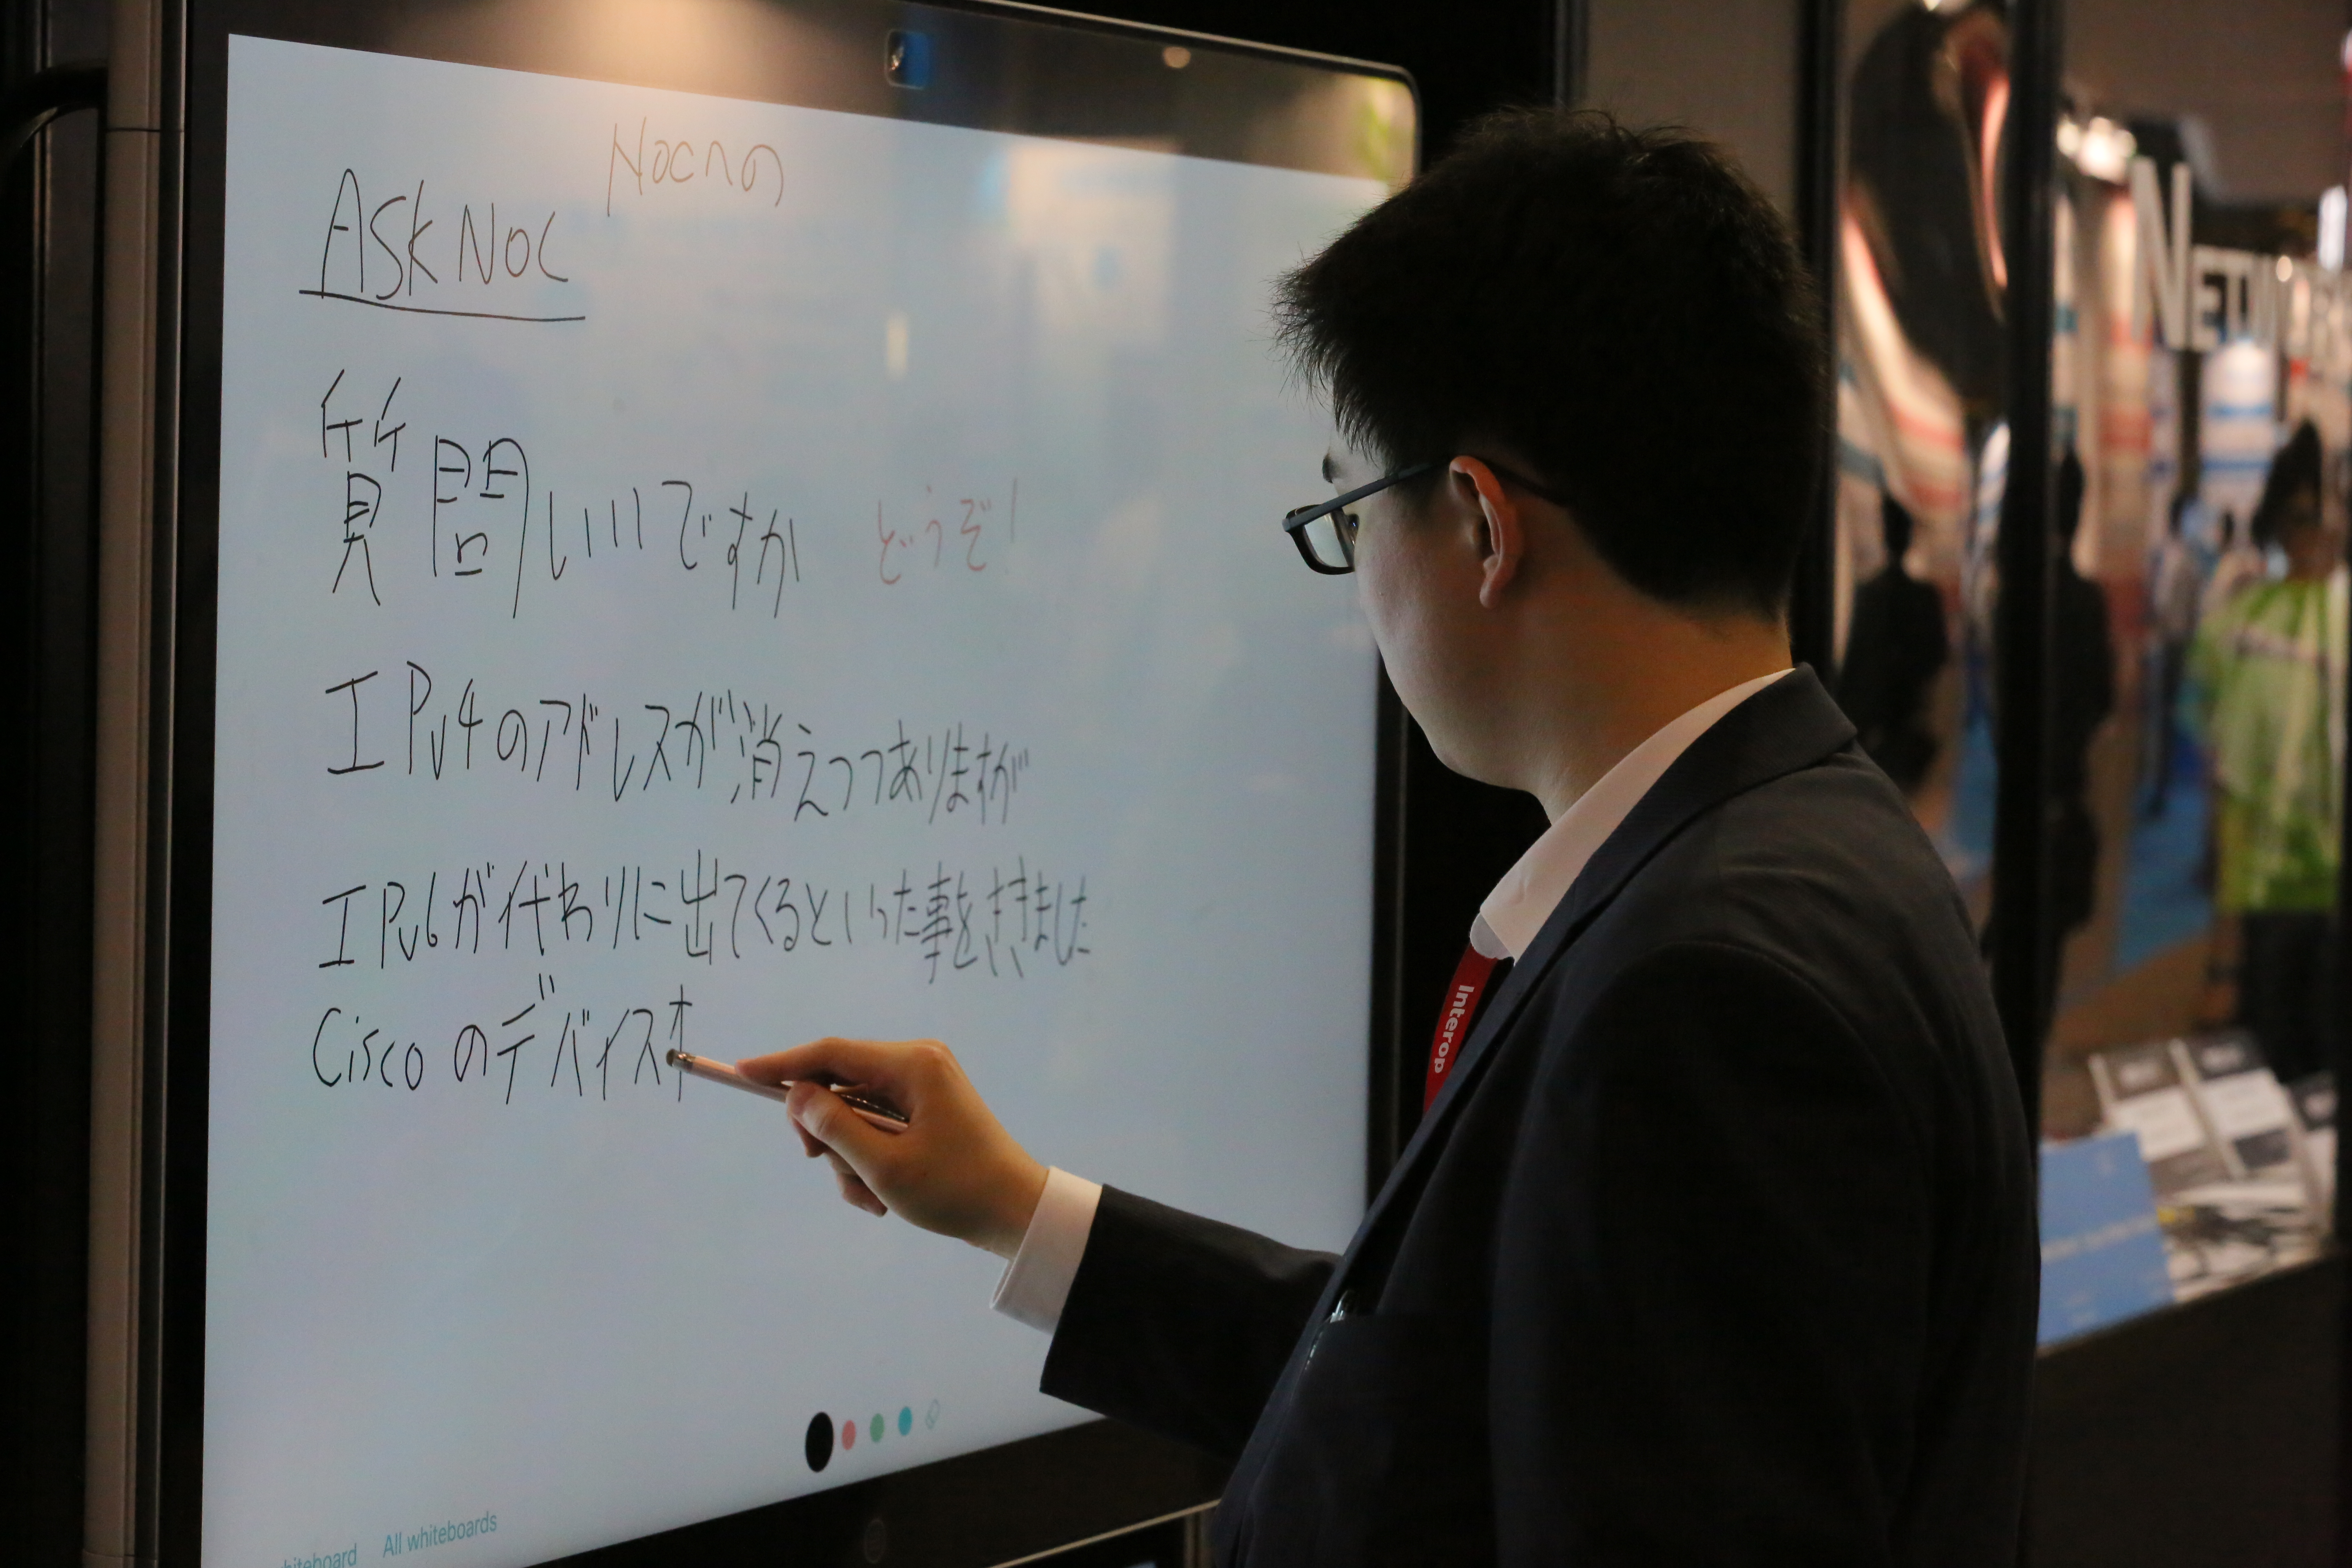 NOCへの
ASK NOC
質問いいですか どうぞ!
IPv4のアドレスが消えつつありますが
IPv6が代わりに出てくるといった事をききました
Ciscoのデバイスオ
Interop
All whiteboards